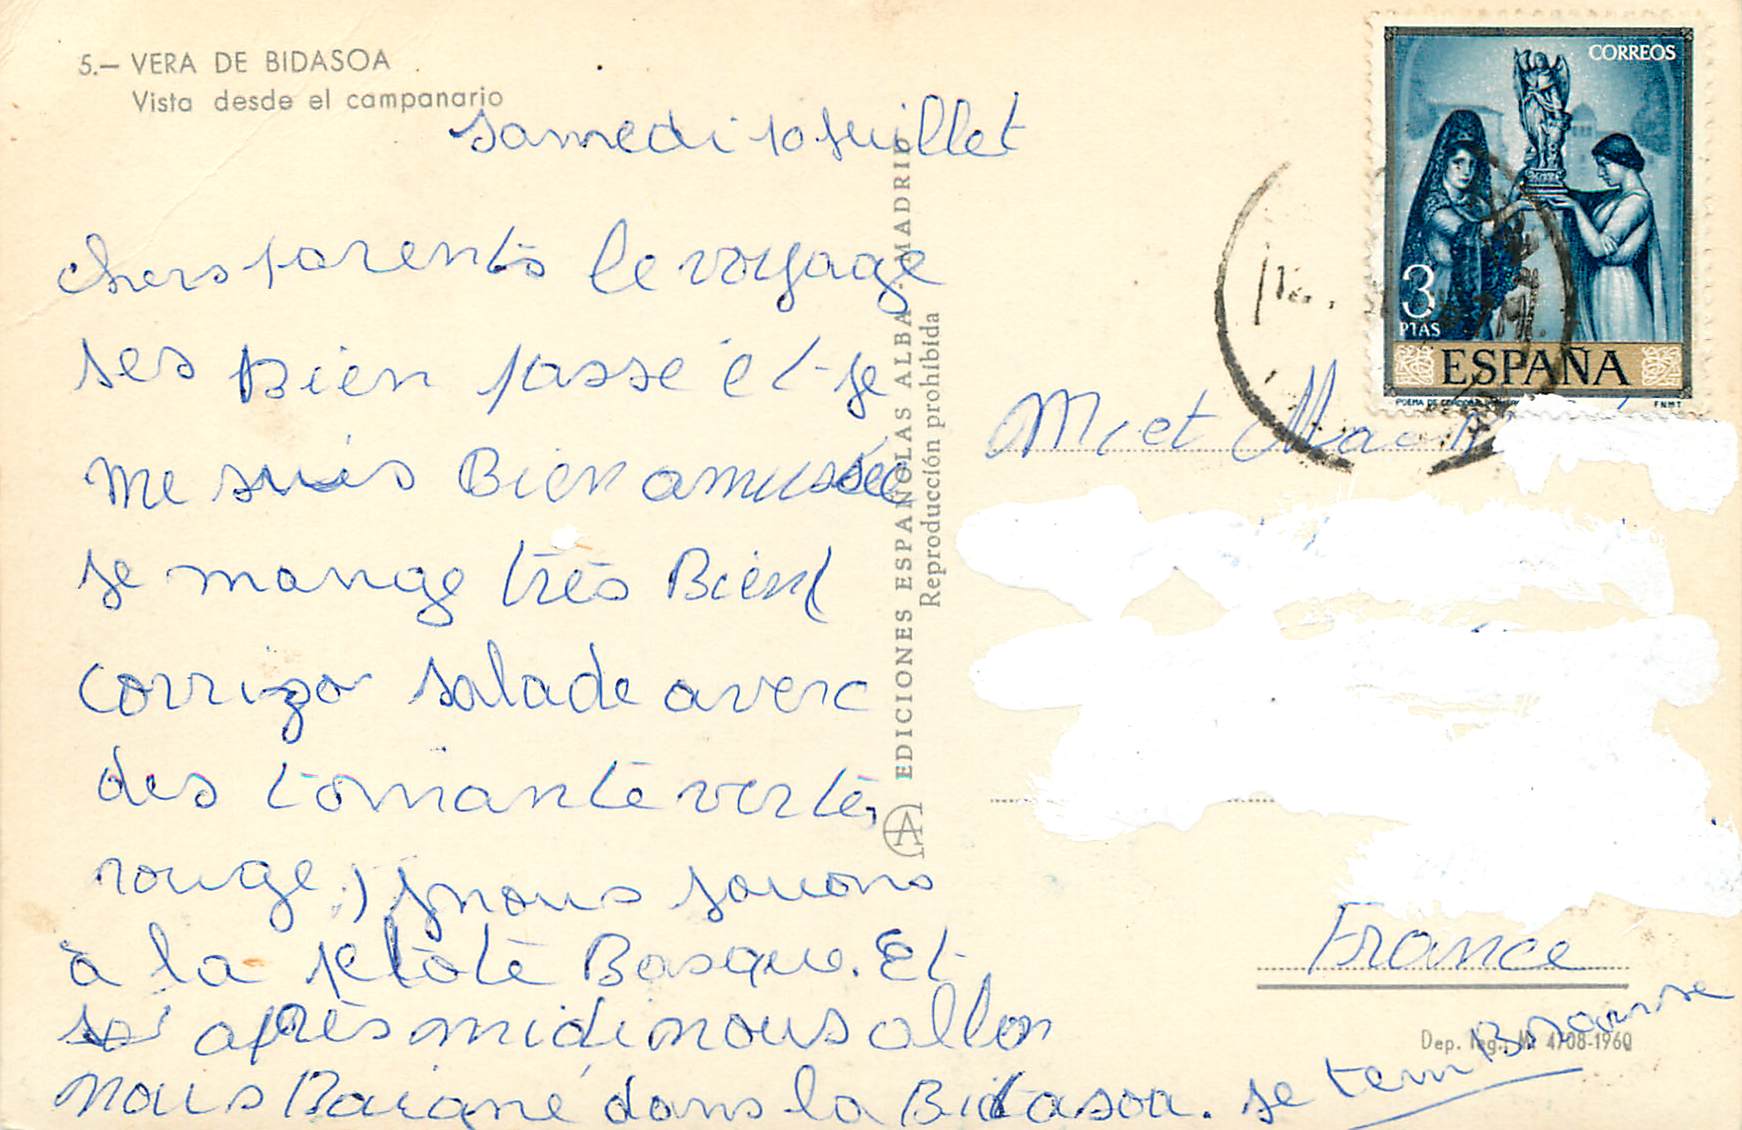 5.— VERA DE BIDASOA
Vista desde el campanario
samedi 10 juillet
chers parents le voyage
ses Bien passé et je
me suis Bien amusée
je mange très Bien (
corrizo salade averc
des tomante verte,
rouge,) nous jouons
à la pelote Basque. Et
après midi nous allon
nous Baigné dans la Bidasoa. je tem Brasse
EDICIONES ESPAÑOLAS ALBA - MADRID
Reproducción prohibida
CORREOS
3
PTAS
ESPAÑA
POEMA DE CORDOBA
F.N.M.T
Mr et
France
Dep. leg., M. 4708-1960